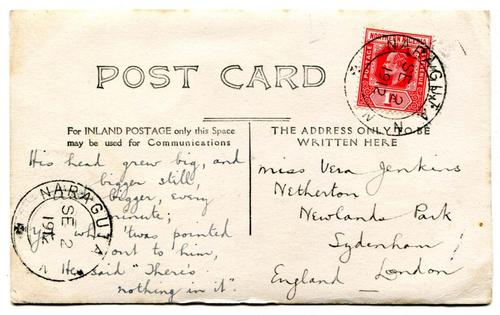 POST CARD
NORTHERN NIGERIA
POSTAGE
NARAGUTA
SE 2
1912
N N
For INLAND POSTAGE only this Space
may be used for Communications
THE ADDRESS ONLY TO BE
WRITTEN HERE
His head grew big, and
bigger still,
bigger, every
minute;
when 'twas pointed
out to him,
He said "There's
nothing in it".
NARAGUTA
SE 2
1912
N
Miss Vera Jenkins
Netherton
Newlands Park
Sydenham
England London